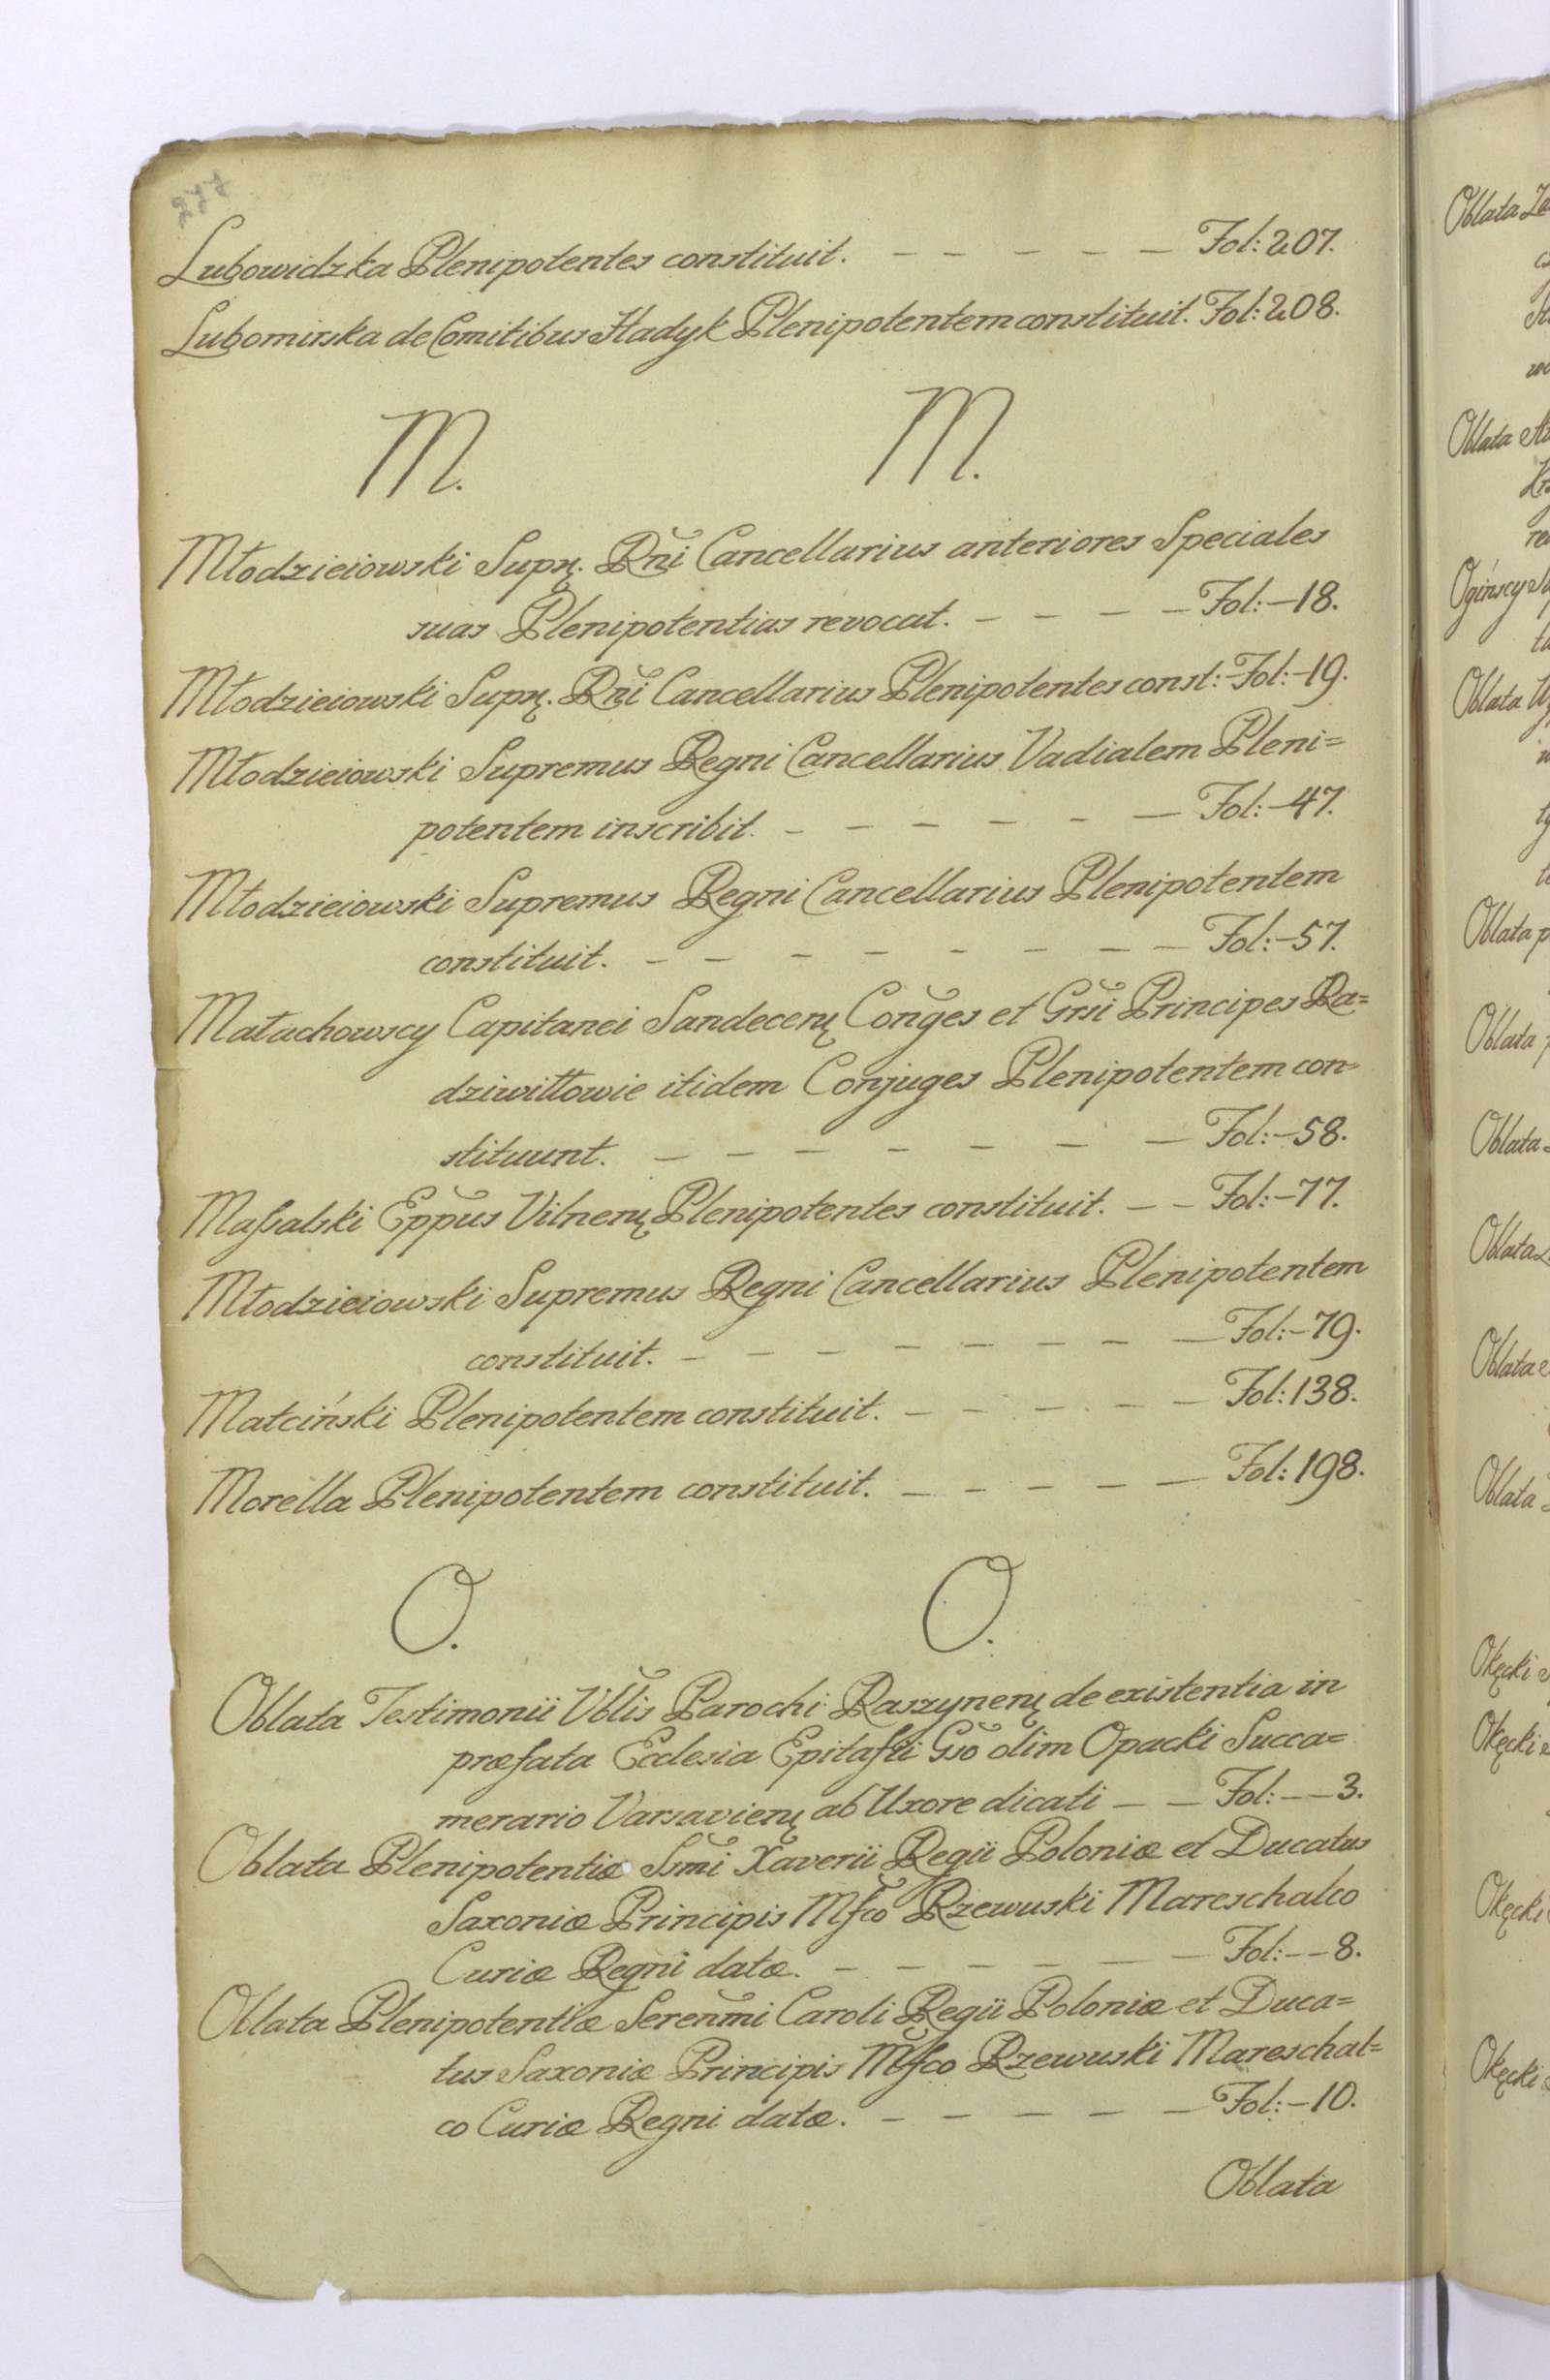 Lubowidzka Plenipotentes constituit. – – – – – Fol: 207.
Lubomirska de Comitibus Hadyk Plenipotentem constituit. Fol: 208.
M. M.
Młodzieiowski Supꝝ. Rñi Cancellarius anteriores Speciales
suas Plenipotentias revocat. – – – – Fol:–18.
Młodzieiowski Supꝝ. Rñi Cancellarius Plenipotentes const: Fol:–19.
Młodzieiowski Supremus Regni Cancellarius Vadialem Pleni=
potentem inscribit. – – – – – – Fol:–47.
Młodzieiowski Supremus Regni Cancellarius Plenipotentem
constituit. – – – – – – – – Fol:–57.
Małachowscy Capitanei Sandecenꝝ Conges et Grsi Principes Ra=
dziwiłłowie itidem Conjuges Plenipotentem con=
stituunt. – – – – – – – – Fol:–58.
Maſsalski Eppus Vilnenꝝ Plenipotentes constituit. – – Fol:–77.
Młodzieiowski Supremus Regni Cancellarius Plenipotentem
constituit. – – – – – – – – Fol:–79.
Małciński Plenipotentem constituit. – – – – – Fol: 138.
Morella Plenipotentem constituit. – – – – – Fol: 198.
O. O.
Oblata Testimonii Vblis Parochi Raszynenꝝ de existentia in
præfata Ecclesia Epitafii Gso olim Opacki Succa=
merario Varsavienꝝ ab Uxore dicati – – Fol: – – 3.
Oblata Plenipotentiæ Smi Xaverii Regii Poloniæ et Ducatus
Saxoniæ Principis Mfco Rzewuski Mareschalco
Curiæ Regni datæ. – – – – – – Fol: – – 8.
Oblata Plenipotentiæ Serenmi Caroli Regii Poloniæ et Duca=
tus Saxoniæ Principis Mfco Rzewuski Mareschal=
co Curiæ Regni datæ. – – – – – Fol:–10.
Oblata
Oblata
Oblata
Ogińscy
Oblata
Oblata
Oblata
Oblata
Oblata
Oblata
Oblata
Okęcki
Okęcki
Okęcki
Okęcki